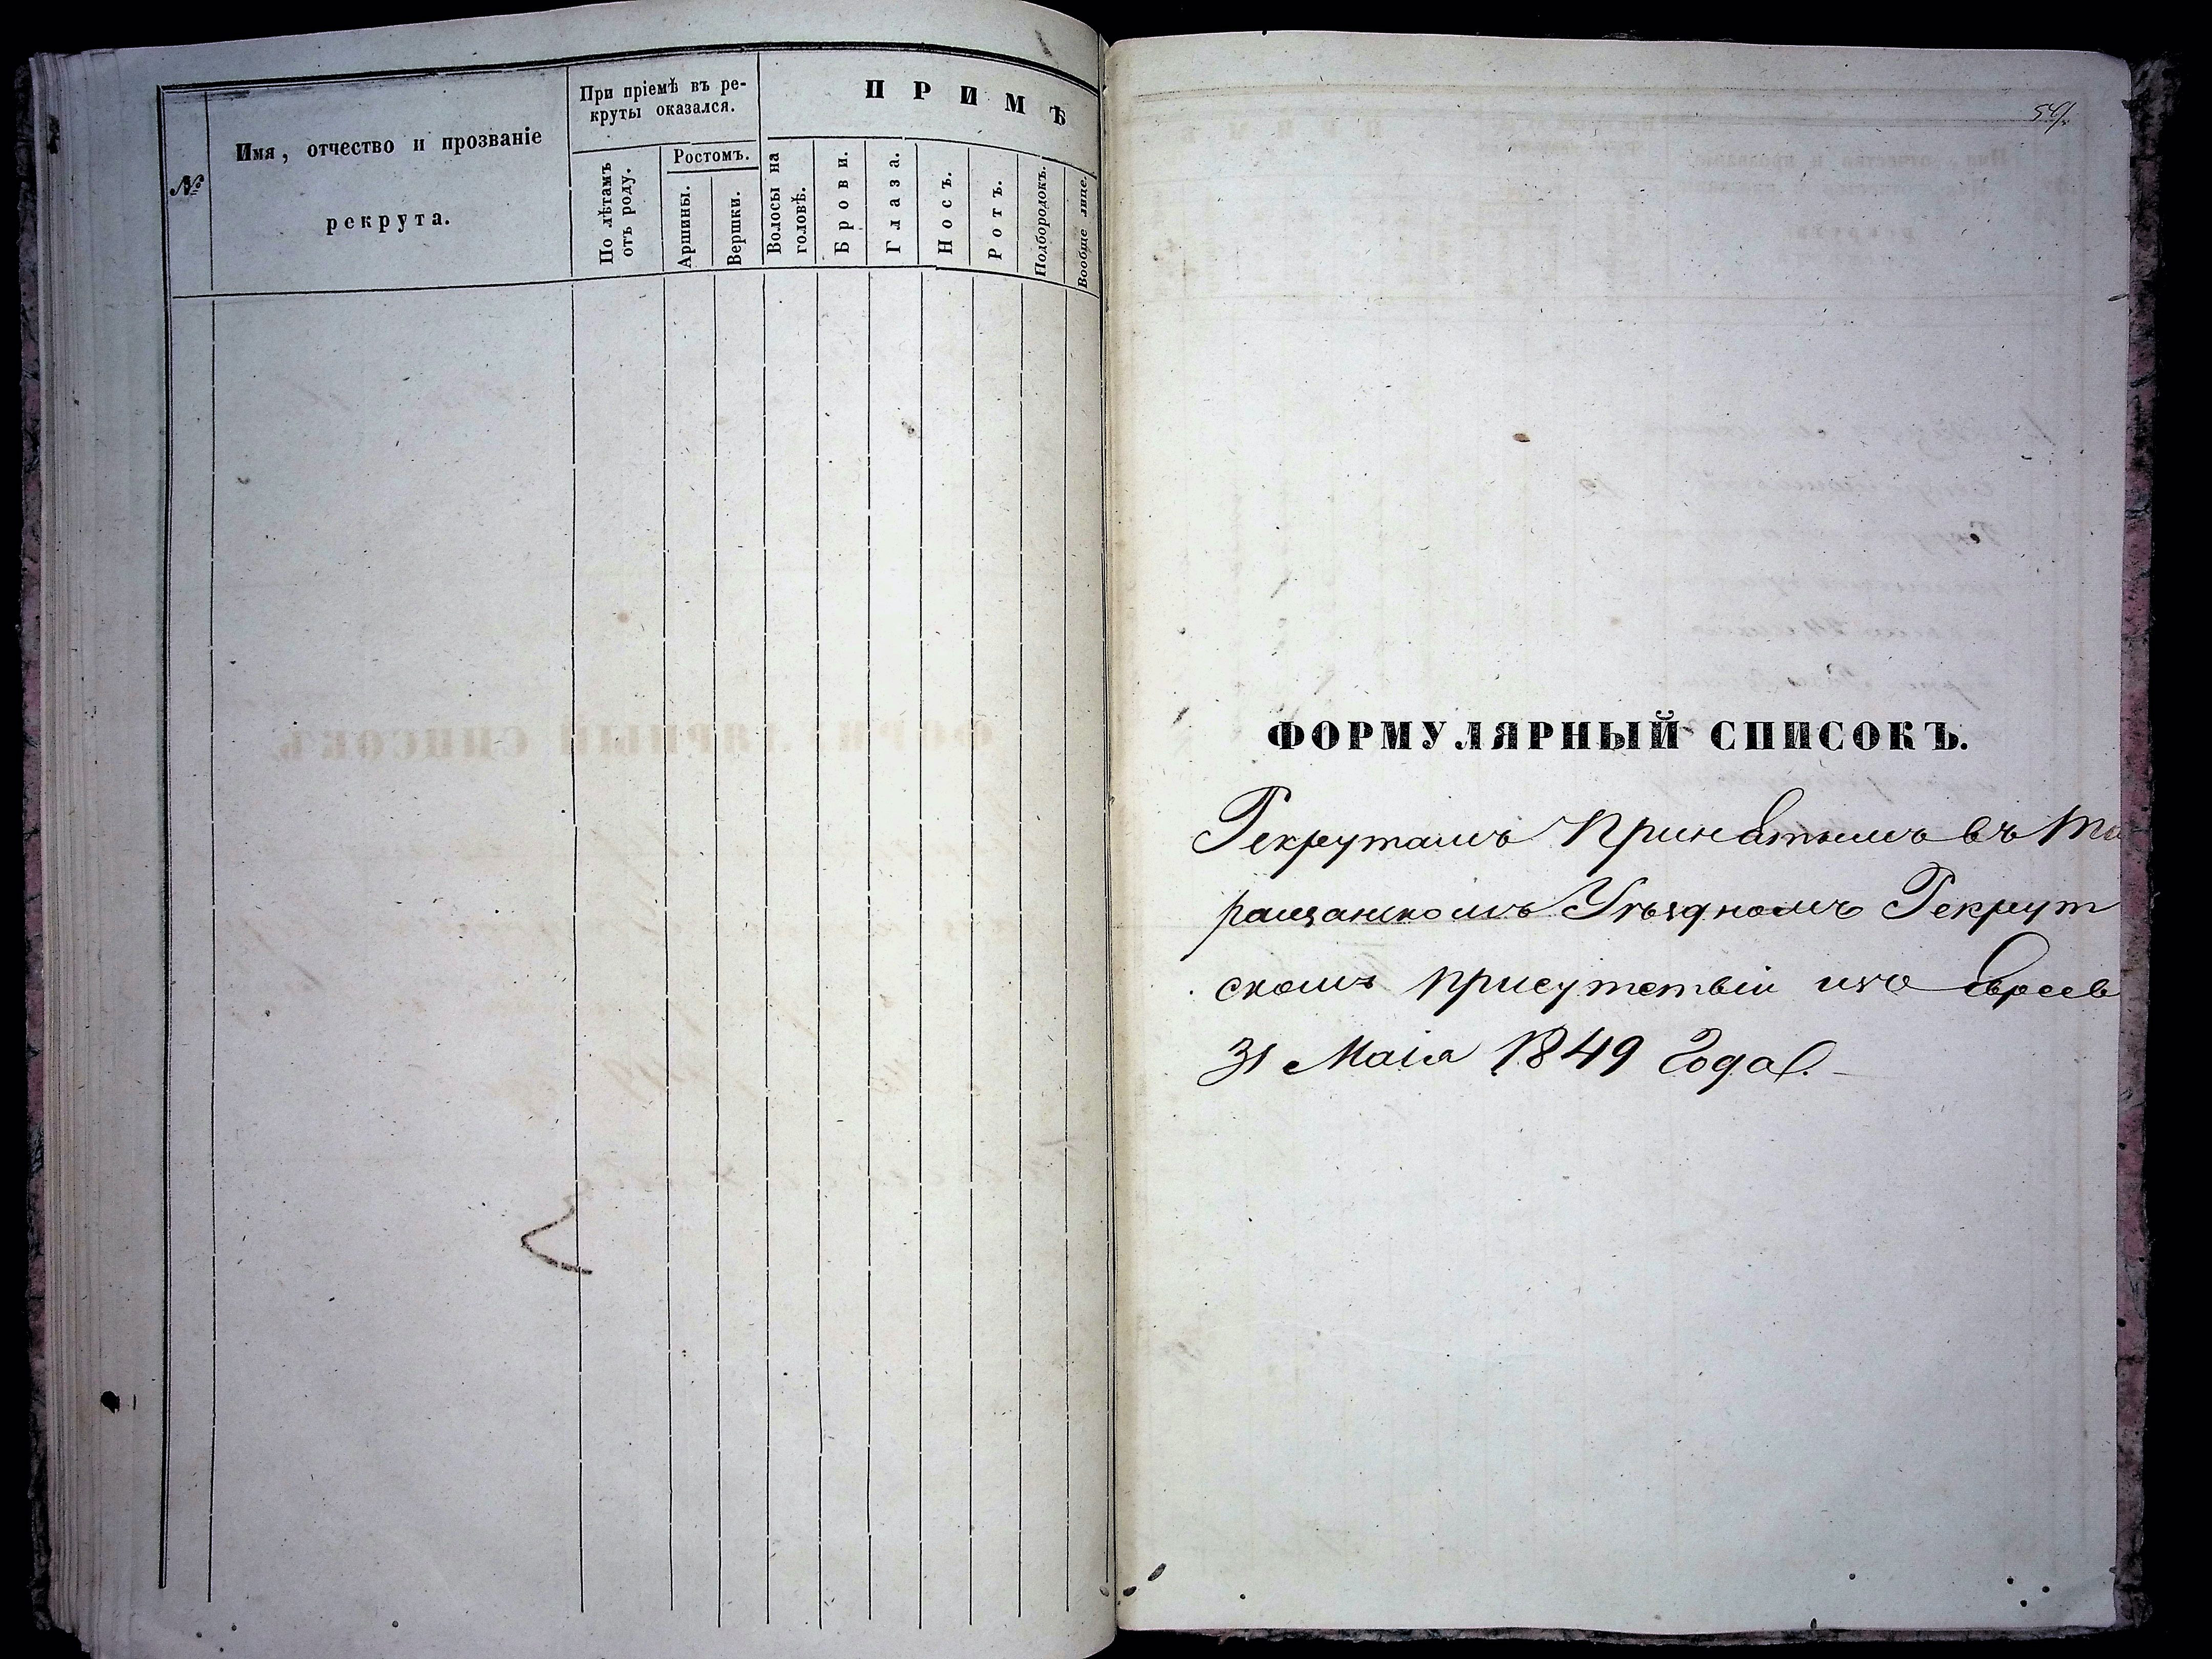 №
Имя, отчество и прозваніе
рекрута.
При пріемѣ въ ре-
круты оказался.
По лѣтамъ
отъ роду.
Ростомъ.
Аршины.
Вершки.
ПРИМѢ
Волосы на
головѣ.
Брови.
Глаза.
Носъ.
Ротъ.
Подбородокъ.
Вообще лице.
ФОРМУЛЯРНЫЙ СПИСОКЪ.
Рекрутамъ принятымъ въ Та
ращанскомъ Уѣздномъ Рекрут
скомъ присутствіи изъ Евреевъ
31 Маія 1849 Года.